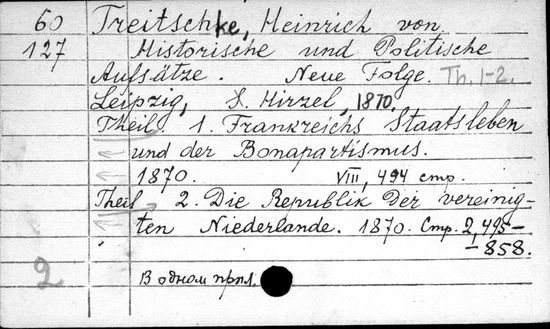 60 Treitschke, Heinrich von
127 Historische und Politische
Aufsätze. Neue Folge. Th. 1-2.
Leipzig, S. Hirzel, 1870.
Theil 1. Frankreichs Staatsleben
und der Bonapartismus.
1870. VIII, 494 стр.
Theil 2. Die Republik der vereinig-
ten Niederlande. 1870. Стр. 2, 495-
-858.
2 В одном прпл.